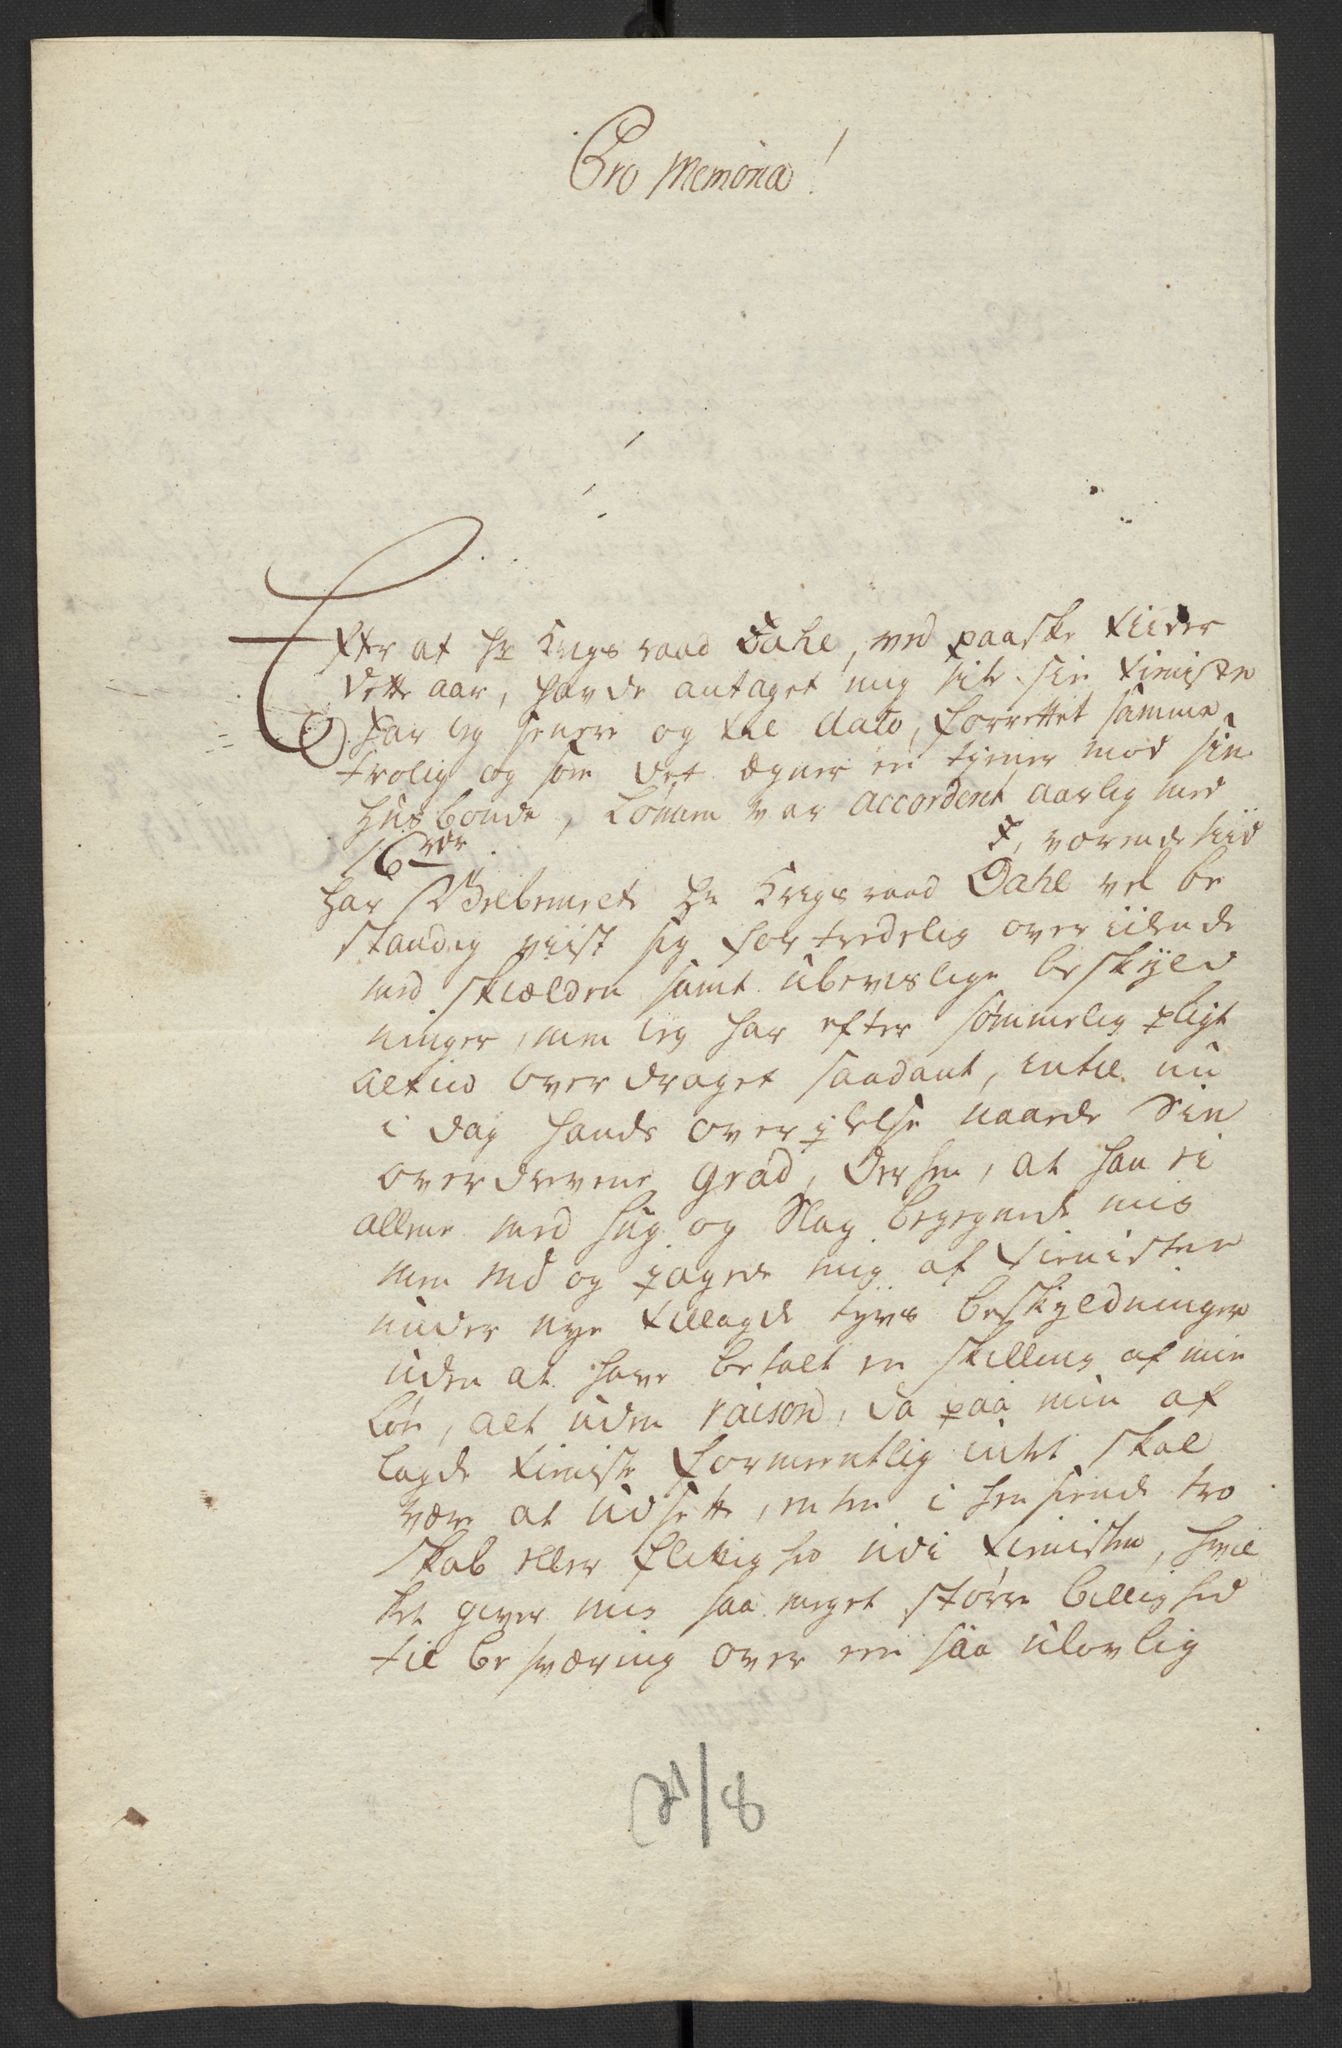 Pro Memoria!
Efter at Hr Krigs raad Dahl, ved paaske tiider
dette aar, havde antaget mig til sin tieniste
har ieg senere og til dato, forrettet samme
trolig og som det egner en tiener mod sin
Huusbonde, Lønnen var accorderet aarlig med
16 rdr
I, værende tiid
har Velbemelte Hr Krigsraad Dahl vel be
standig viist sig fortredelig over iilende
med skielden samt ubevislige beskyld
ninger, men ieg har efter sømmelig pligt
altiid over draget saadant, intil nu
i dag hands over ilelse naaede sin
overdrevene grad, der hen, at han ei
allene med hug og Slag begegnede mig
men end og jagede mig af tienisten
under nye tillagde tyvs beskyldninger
uden at have betalt en skilling af min
Løn, alt uden raison, da paa min af
lagde tieniste formeentlig intet skal
være at udsette, enten i henseende tro
skab eller flittighed udi tienisten, hvil
ket giver mig saa meget større billighed
til besværing over een saa ulovlig
21/8